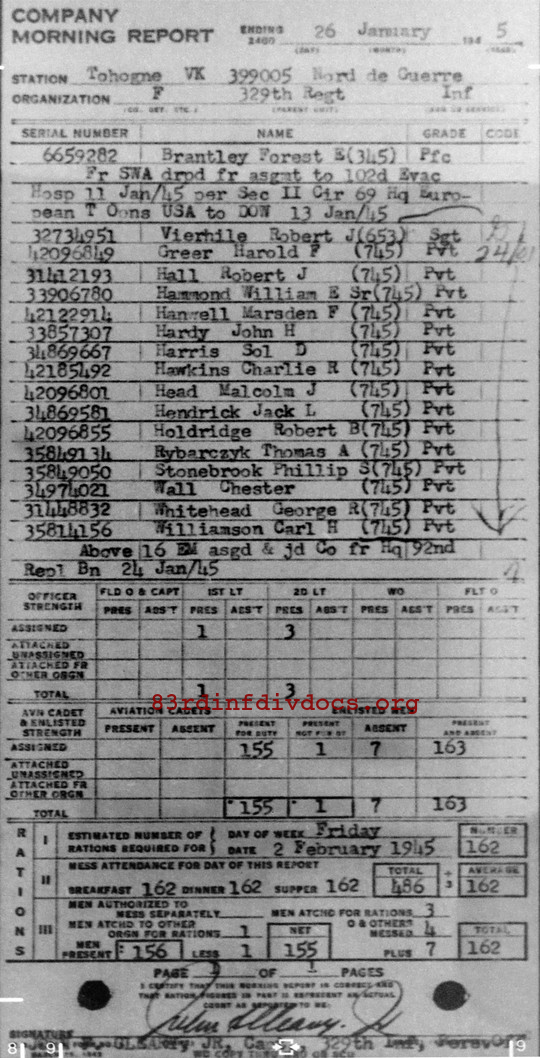 COMPANY
MORNING REPORT ENDING 2400 26 January 194 5
(DAY) (MONTH) (YEAR)
STATION Tohogne VK 399005 Nord de Guerre
ORGANIZATION F 329th Regt Inf
(CO. DET. ETC.) (PARENT UNIT) (ARM OR SERVICE)
SERIAL NUMBER NAME GRADE CODE
6659282 Brantley Forest E(345) Pfc
Fr SWA drpd fr asgmt to 102d Evac
Hosp 11 Jan/45 per Sec II Cir 69 Hq Euro-
pean T Opns USA to DOW 13 Jan/45
32734951 Vierhile Robert J(653) Sgt
42096849 Greer Harold F (745) Pvt
31412193 Hall Robert J (745) Pvt
33906780 Hammond William E Sr(745) Pvt
42122914 Hanwell Marsden F (745) Pvt
33857307 Hardy John H (745) Pvt
34869667 Harris Sol D (745) Pvt
42185492 Hawkins Charlie R (745) Pvt
42096801 Head Malcolm J (745) Pvt
34869581 Hendrick Jack L (745) Pvt
42096855 Holdridge Robert B(745) Pvt
35849134 Rybarczyk Thomas A (745) Pvt
35849050 Stonebrook Phillip S(745) Pvt
34974021 Wall Chester (745) Pvt
31448832 Whitehead George R(745) Pvt
35814156 Williamson Carl H (745) Pvt
Above 16 EM asgd & jd Co fr Hq 92nd
Repl Bn 24 Jan/45
OFFICER STRENGTH FLD O & CAPT 1ST LT 2D LT WO FLT O
PRES ABS'T PRES ABS'T PRES ABS'T PRES ABS'T PRES ABS'T
ASSIGNED 1 3
ATTACHED UNASSIGNED
ATTACHED FR OTHER ORGN
TOTAL 1 3
83rdinfdivdocs.org
AVN CADET & ENLISTED STRENGTH AVIATION CADETS ENLISTED MEN
PRESENT ABSENT PRESENT FOR DUTY PRESENT NOT FOR DY ABSENT PRESENT AND ABSENT
ASSIGNED 155 1 7 163
ATTACHED UNASSIGNED
ATTACHED FR OTHER ORGN
TOTAL 155 1 7 163
RATIONS
I ESTIMATED NUMBER OF RATIONS REQUIRED FOR DAY OF WEEK Friday NUMBER
DATE 2 February 1945 162
II MESS ATTENDANCE FOR DAY OF THIS REPORT TOTAL ÷ 3 AVERAGE
BREAKFAST 162 DINNER 162 SUPPER 162 486 162
III MEN AUTHORIZED TO MESS SEPARATELY MEN ATCHD FOR RATIONS 3
MEN ATCHD TO OTHER ORGN FOR RATIONS 1 NET O & OTHERS MESSED 4 TOTAL
MEN PRESENT 156 LESS 1 155 PLUS 7 162
PAGE 1 OF 1 PAGES
I CERTIFY THAT THIS MORNING REPORT IS CORRECT AND
THAT RATION FIGURES IN PART II REPRESENT AN ACTUAL
COUNT AS REPORTED TO ME:
SIGNATURE
GLEARY JR, 329th Inf,
8 9 9